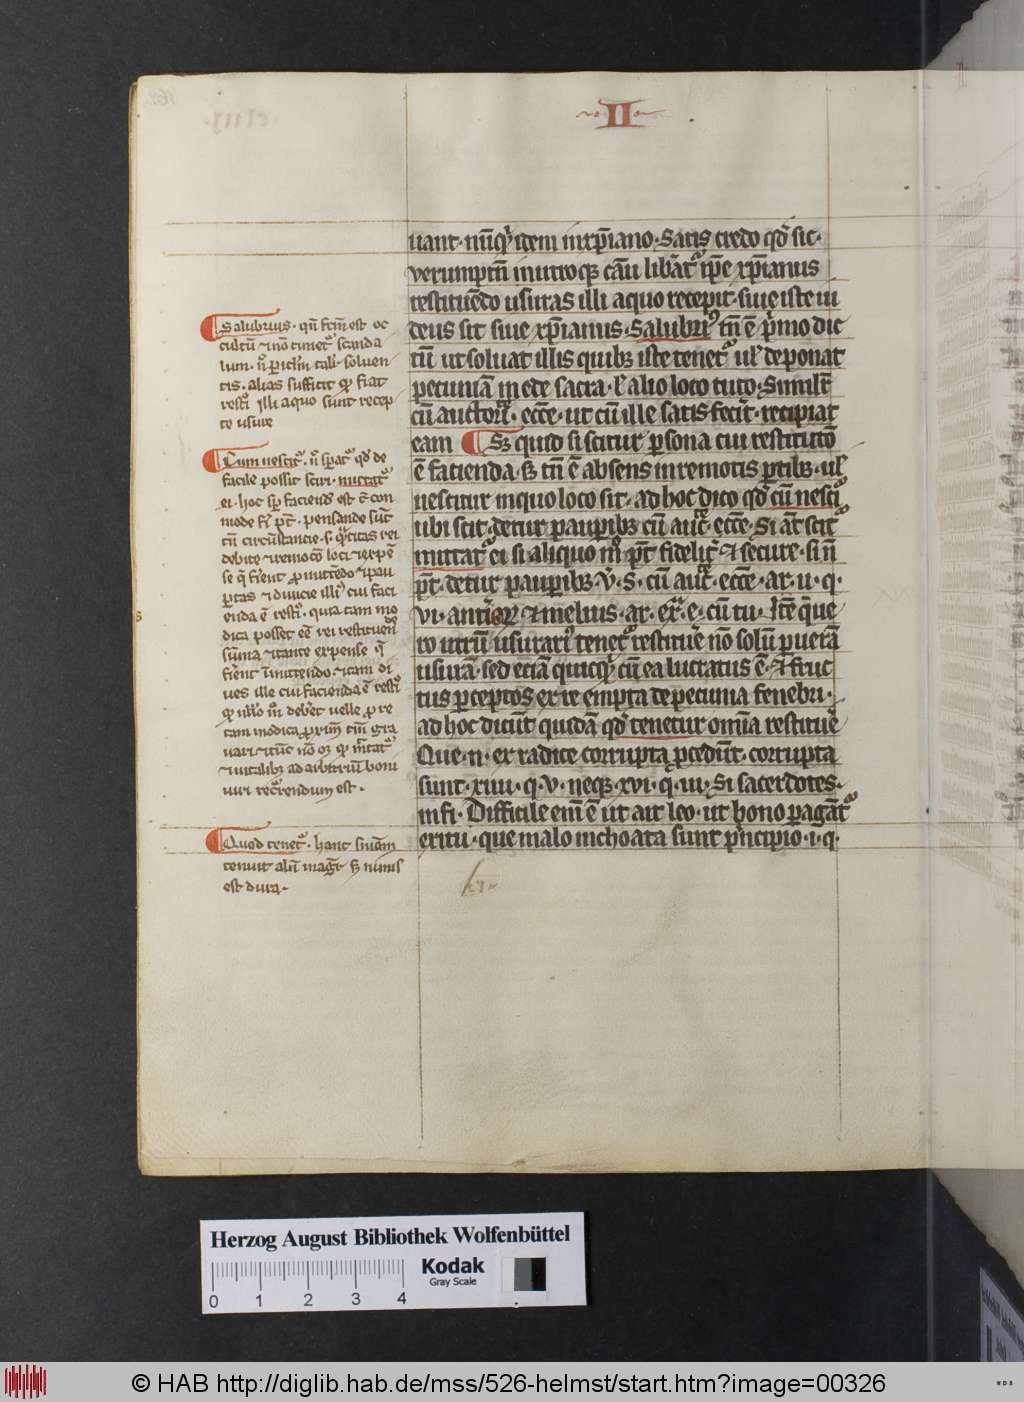 II
uant · nūqͥd idem in xp̄iano · Satis credo qd̓ sic ·
verumptn̄ in utroqꝫ cāu lib̓atᷣ ip̄e xp̄ianus
restituēdo usuras illi a quo recepit · siue iste iu
deus sit siue xp̄ianus · Salubriꝰ tn̄ ē pͥmo dic
tū ut soluat illis quibꝫ iste tenetᷣ ul̓ deponat
pecuniā in ede sacra · l̓ alio loco tuto · Similit̓
cū auctori̓ · ecc̄e · ut cū ille satisfecit · recipiat
eam Sꝫ quid si scitur ꝑsona cui restitutō
ē facienda · sꝫ tn̄ ē absens in remotis ꝑtibꝫ · ul̓
nescitur in quo loco sit · ad hoc dico qd̓ cū nescitᷣ
ubi scit detur pauꝑibꝫ cū auct̓ · ecc̄e · Si aūt scitᷣ
mittatᷣ ei si aliquo mͦ pt̄ fidelit̓ ⁊ secure · si n̄
pt̄ · detur pauꝑibꝫ v̓ · s · cū auct̓ · ecc̄e · ar · u · q ·
vi · ⁊ melius · ar · exͣ · e · cū tu ·
to utrū usurariꝰ tenetᷣ restitue̓ nō solū puram
usurā · sed etiā quicqͥd cū ea lucratus ē · ⁊ fruc
tus ꝑceptos ex re empta de pecunia fenebri ·
ad hoc dicūt quidā qd̓ tenetur om̄ia restitue̓
Que · n · ex radice corrupta ꝓcedūt · corrupta
sunt · xiiii · q · v · neqꝫ · xvi · q · iii · Si sacerdotes ·
infi · Difficile eni̓ ē ut ait leo · ut bono ꝑagātᷣ
exitu · que malo inchoata sunt pͥncipio · i · q ·
Salubrius · qn̄ fcm̄ est oc
cultū ⁊ nō timetᷣ scanda
lum · n̓ ꝑiclm̄ tal̓ · soluen
tis · alias sufficit qd̓ fiat
resti̓ illi a quo sunt recep
te usure
Cum nescitᷣ · n̓ spatᷣ qd̓ de
facile possit sciri · mittatᷣ
ei · hoc sꝑ faciend̓ est si com
mode fi̓ pt̄ · pensande sūt
tn̄ circūstancie · s · qͣntitas rei
debite ⁊ remotō loci ⁊ expē
se q̄ fient ꝓ mittēdo ⁊ pau
ꝑtas ⁊ diuicie illiꝰ cui faci
enda ē resti̓ · quia tam mo
dica posset ee̓ rei restituēde
sūma ⁊ tante expense q̄
fient in mittendo · ⁊ tam di
ues ille cui facienda ē resti̓
qd̓ nllo mͦ debet uelle ꝓ re
tam modica ꝓximū suū gra
uari ⁊ tūc nō oꝫ qd̓ mittatᷣ
⁊ in talibꝫ ad arbitriū boni
uiri recurrendum est ·
Quod tenetᷣ · hanc sniam
tenuit alan̓ magr̄ sꝫ nimis
est dura ·
Herzog August Bibliothek Wolfenbüttel
Kodak
Gray Scale
0 1 2 3 4
© HAB http://diglib.hab.de/mss/526-helmst/start.htm?image=00326